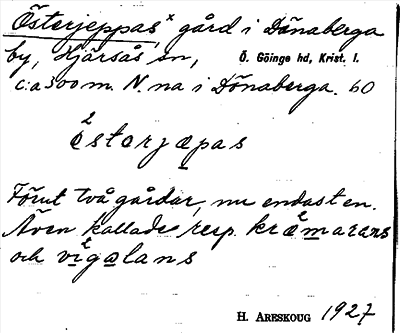 Österjeppas,× gård i Dönaberga
by, Hjärsås sn, Ö. Göinge hd, Krist. l.
c:a 300 m. N na i Dönaberga. 60
östərjæpas
Förut två gårdar, nu endast en.
Även kallade resp. kræmarans
och vigəlans
H. ARESKOUG 1927